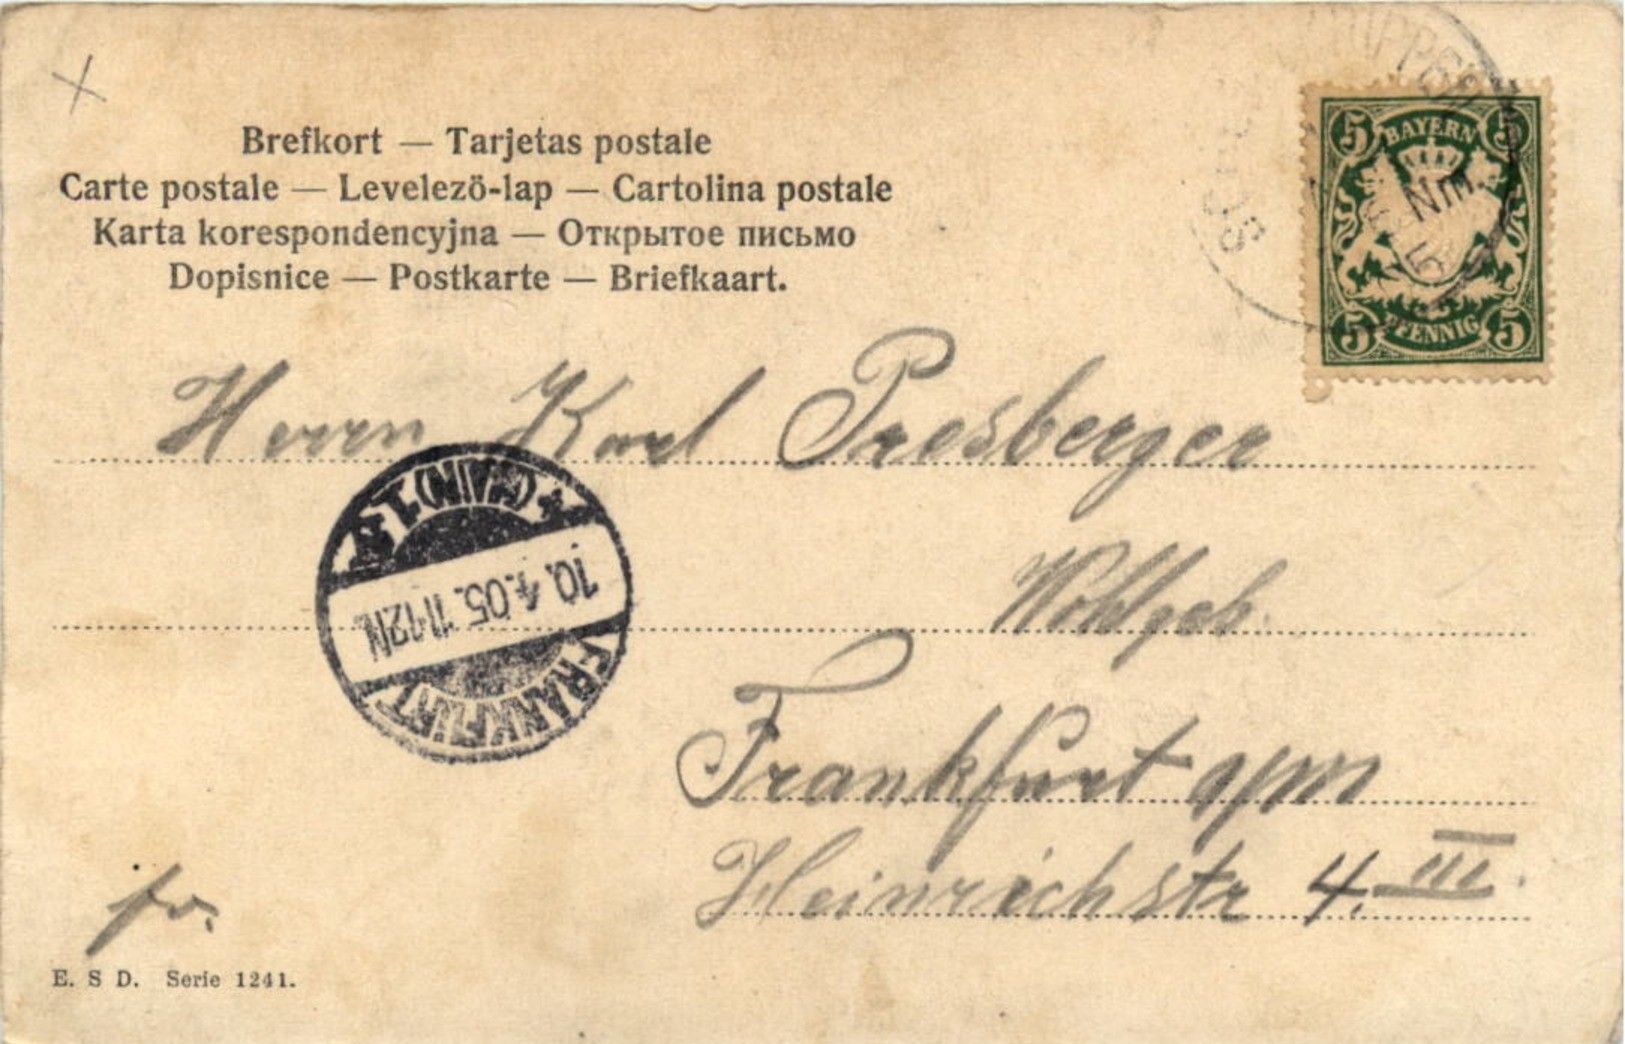 Brefkort — Tarjetas postale
Carte postale — Levelezö-lap — Cartolina postale
Karta korespondencyjna — Открытое письмо
Dopisnice — Postkarte — Briefkaart.
5 BAYERN 5
Nm.
5 PFENNIG 5
Herrn Karl Presberger
Wohlgeb.
Frankfurt a/m
Heinrichstr 4. III.
FRANKFURT
10.4.05. 11-12N.
(MAIN) 1
fr.
E. S D. Serie 1241.